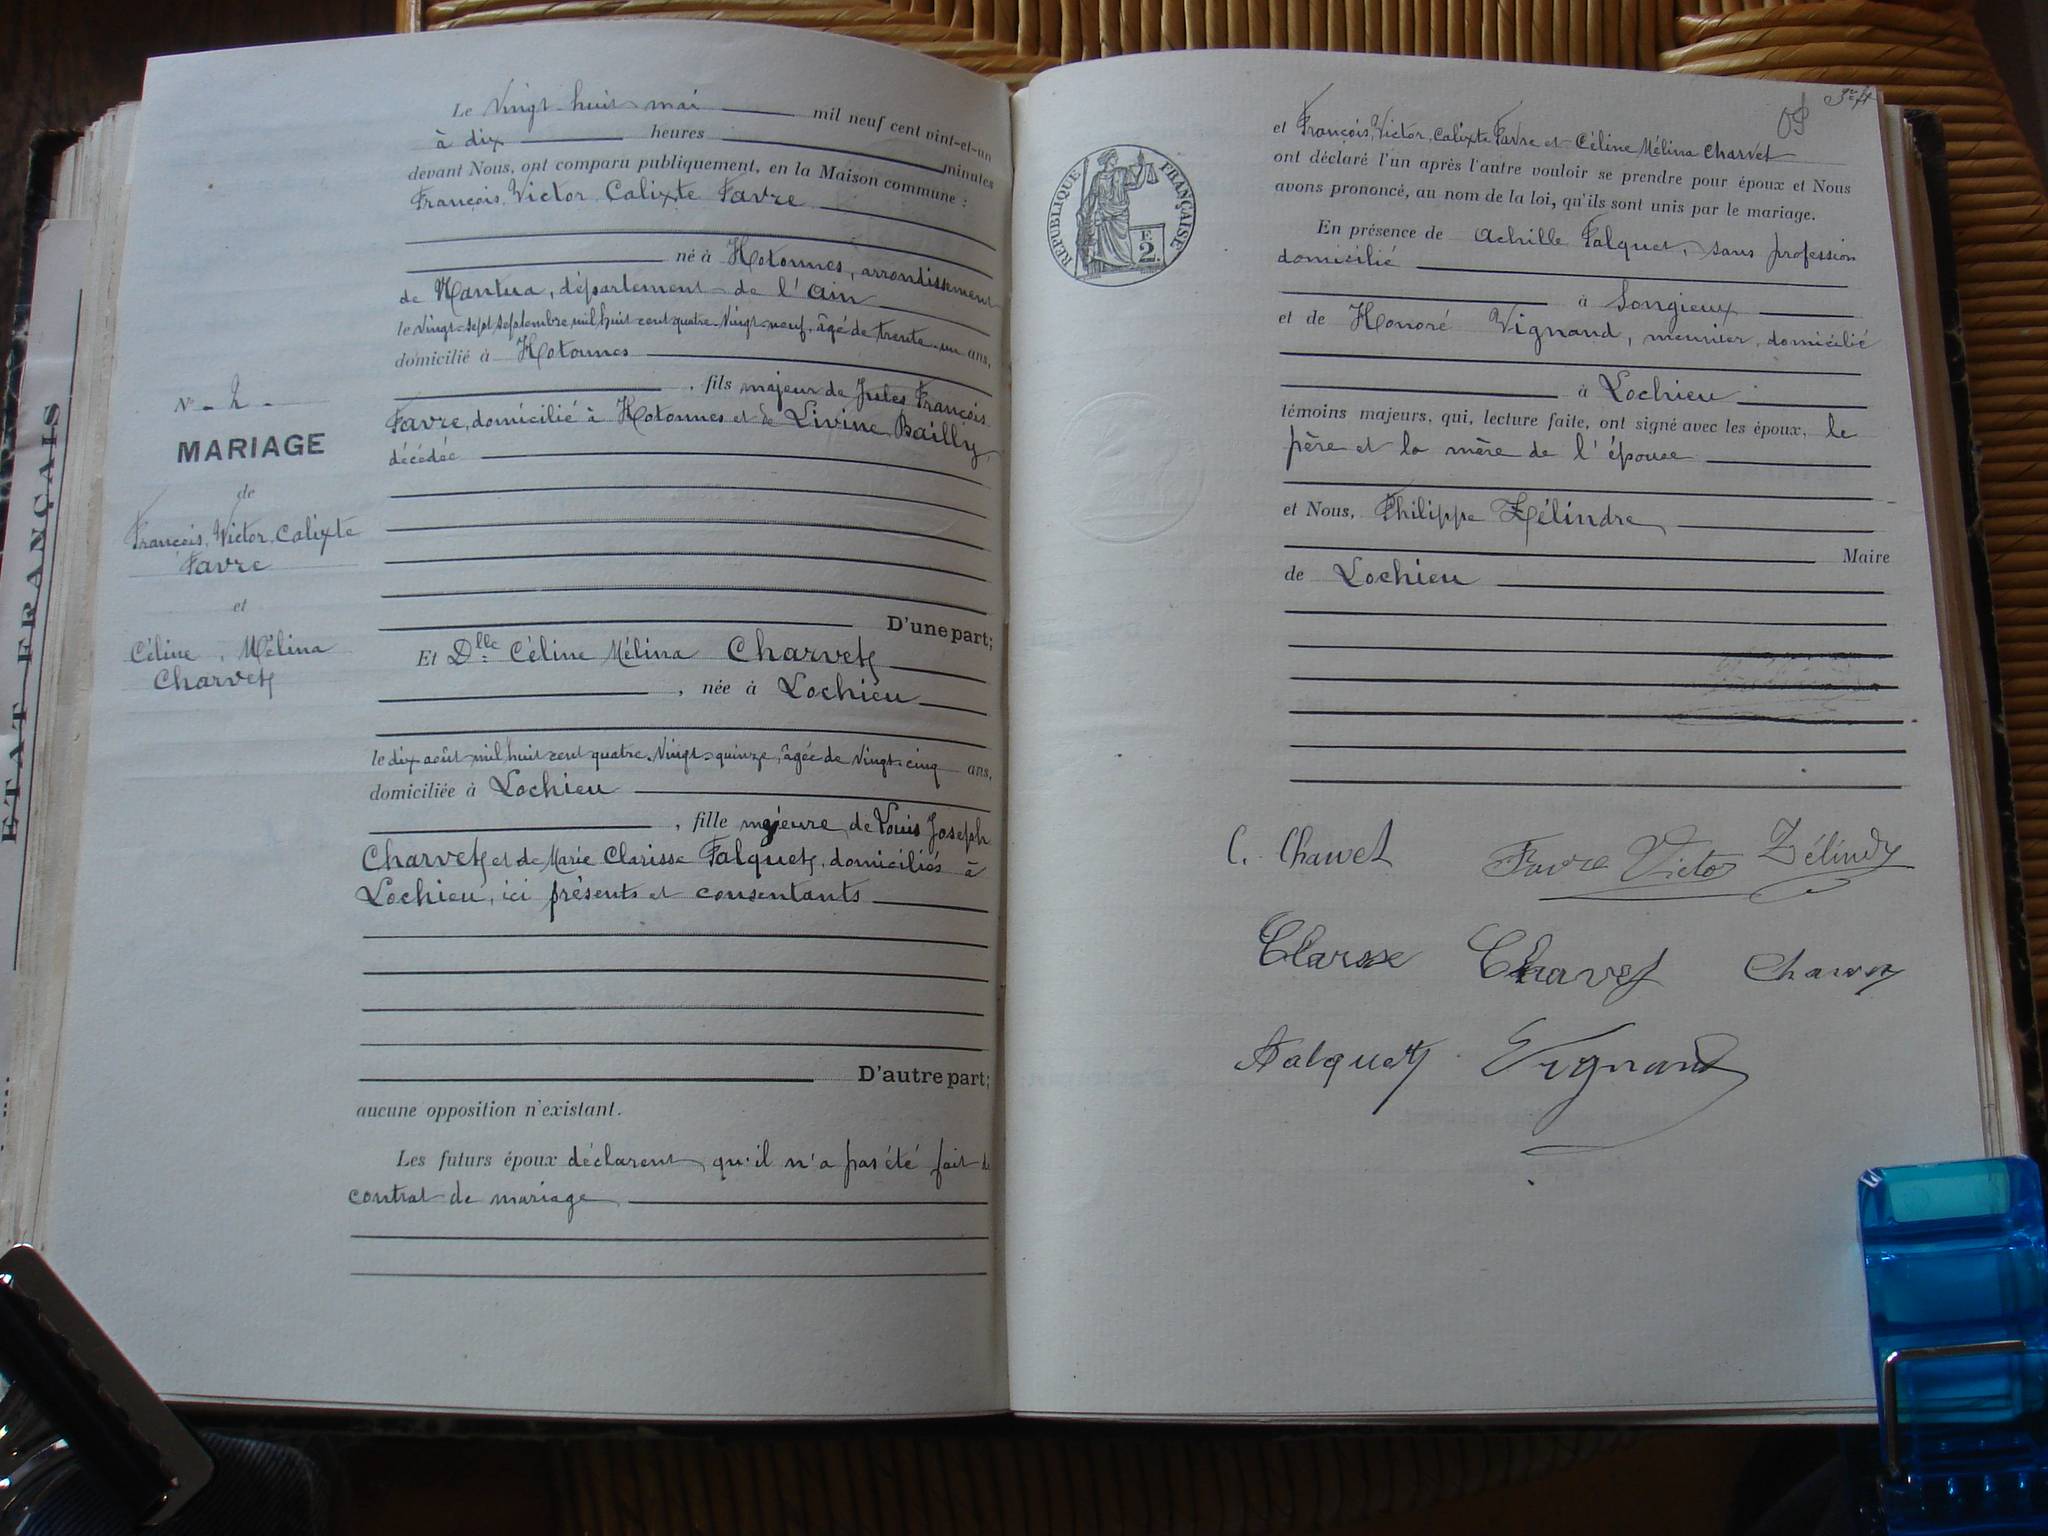 ETAT FRANÇAIS
N° 2
MARIAGE
de
François, Victor, Calixte
Favre
et
Céline, Mélina
Charvet
Le Vingt huit mai mil neuf cent vint-et-un
à dix heures minutes
devant Nous, ont comparu publiquement, en la Maison commune :
François, Victor, Calixte Favre
né à Hotonnes, arrondissement
de Nantua, département de l'Ain
le vingt-sept septembre mil huit cent quatre-vingt-neuf, âgé de trente-un ans,
domicilié à Hotonnes
, fils majeur de Jules François
Favre, domicilié à Hotonnes et de Livine Bailly,
décédée
D'une part;
Et Dlle Céline Mélina Charvet
, née à Lochieu
le dix août mil huit cent quatre-vingt-quinze, âgée de vingt-cinq ans,
domiciliée à Lochieu
, fille majeure de Louis Joseph
Charvet et de Marie Clarisse Falquet, domiciliés à
Lochieu, ici présents et consentants
D'autre part;
aucune opposition n'existant.
Les futurs époux déclarent qu'il n'a pas été fait de
contrat de mariage
RÉPUBLIQUE FRANÇAISE
F.
2.
et François, Victor, Calixte Favre et Céline Mélina Charvet
ont déclaré l'un après l'autre vouloir se prendre pour époux et Nous
avons prononcé, au nom de la loi, qu'ils sont unis par le mariage.
En présence de Achille Falquet, sans profession
domicilié
à Songieux
et de Honoré Vignand, meunier, domicilié
à Lochieu
témoins majeurs, qui, lecture faite, ont signé avec les époux, le
père et la mère de l'épouse
et Nous, Philippe Zélindre
Maire
de Lochieu
C. Charvet Favre Victor Zélindre
Clarsse Charvet Charvet
Falquet Vignand